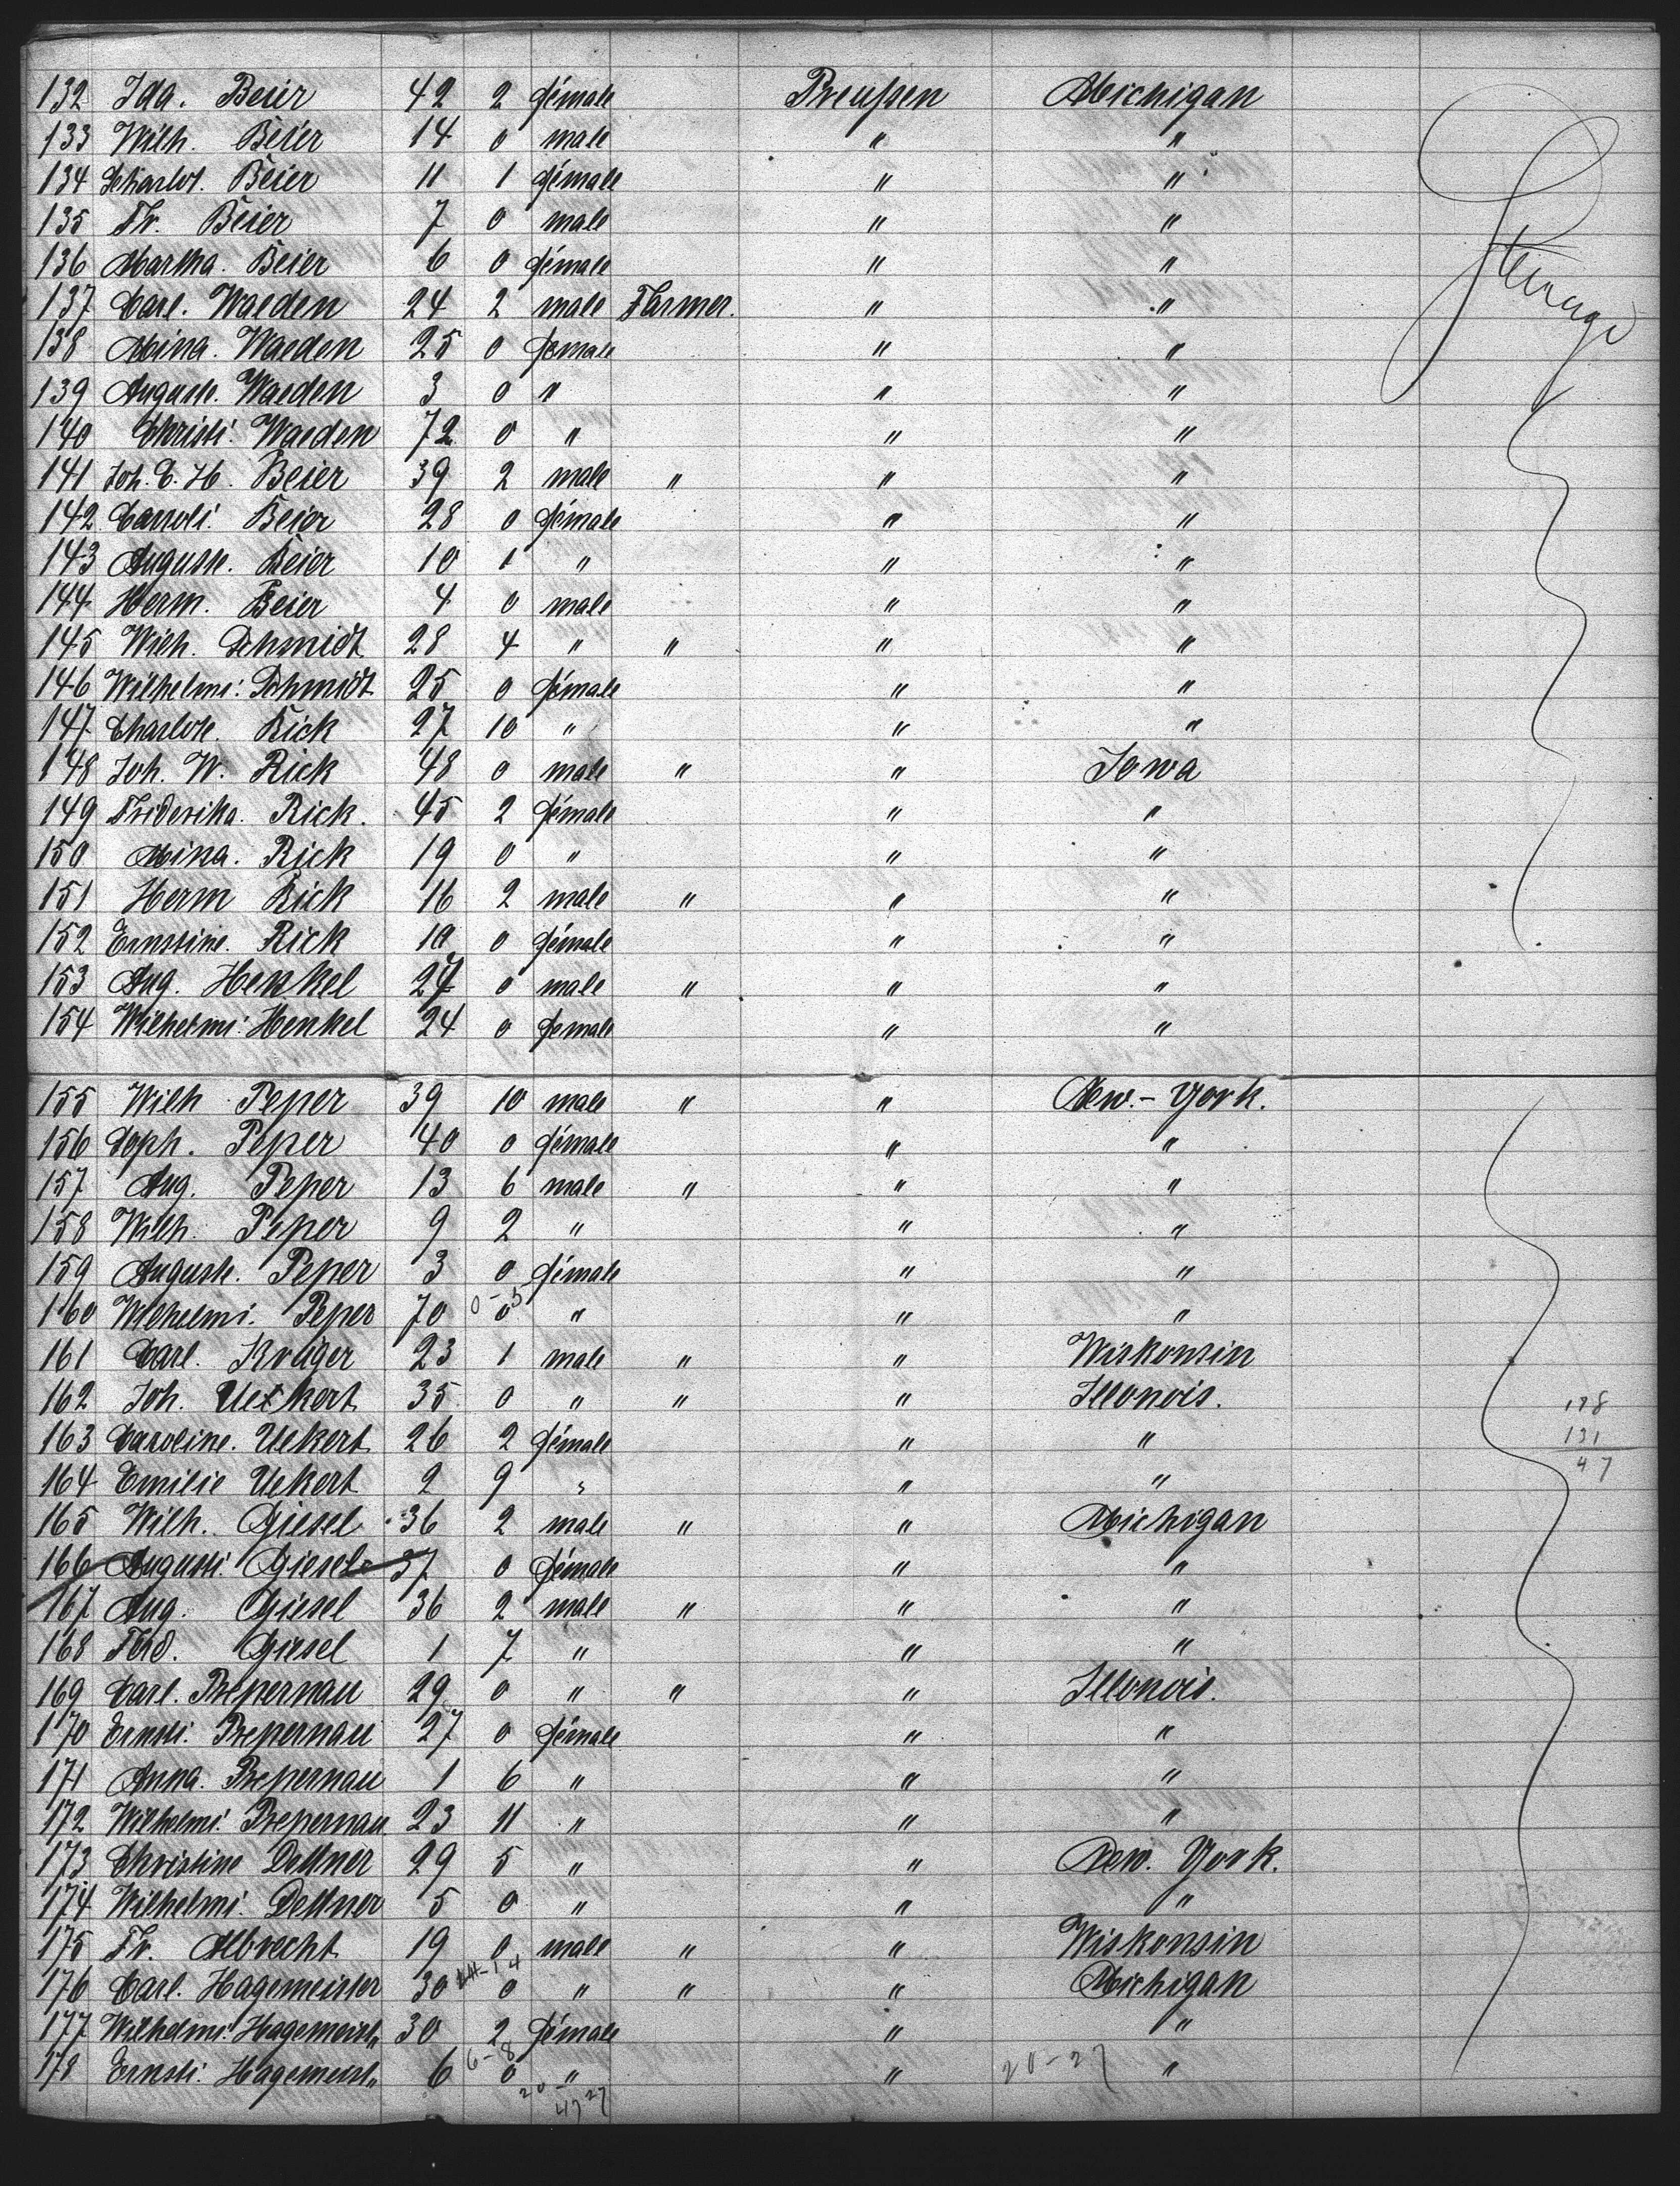 132 Ida. Beier 42 2 female Preußen Michigan
133 Wilh. Beier 14 0 male " "
134 Scharlot. Beier 11 1 female " "
135 Fr. Beier 7 0 male " "
136 Martha. Beier 6 0 female " "
137 Carl. Waeden 24 2 male Farmer. " "
138 Mina. Waeden 25 0 female " "
139 Auguste. Waeden 3 0 " " "
140 Christi: Waeden 72 0 " " "
141 Joh. C. H. Beier 39 2 male " " "
142 Carroli: Beier 28 0 female " "
143 Auguste. Beier 10 1 " " "
144 Herm. Beier 4 0 male " "
145 Wilh. Schmidt 28 4 " " " "
146 Wilhelmi: Schmidt 25 0 female " "
147 Charlote. Rick 27 10 " " "
148 Joh. W. Rick 48 0 male " " Iowa
149 Friderika. Rick. 45 2 female " "
150 Mina. Rick 19 0 " " "
151 Herm Rick 16 2 male " " "
152 Ernstine. Rick 10 0 female " "
153 Aug. Henkel 27 0 male " " "
154 Wilhelmi: Henkel 24 0 female " "
155 Wilh Peper 39 10 male " " New.-York.
156 Soph. Peper 40 0 female " "
157 Aug. Peper 13 6 male " " "
158 Wilh. Peper 9 2 " " "
159 Auguste. Peper 3 0 female " "
0-5
160 Wilhelmi. Peper 70 0 " " "
161 Carl. Krüger 23 1 male " " Wiskonsin
162 Joh. Ueckert 35 0 " " " Illonois.
178
163 Caroline. Uekert 26 2 female " "
131
164 Emilie Uekert 2 9 " " "
47
165 Wilh. Giesel 36 2 male " " Michigan
166 Augusti: Giesel 37 0 female " "
167 Aug. Giesel 36 2 male " " "
168 Ferd. Giesel 1 7 " " "
169 Carl. Prepernau 29 0 " " " Illonois.
170 Ernsti: Prepernau 27 0 female " "
171 Anna. Prepernau 1 6 " " "
172 Wilhelmi: Prepernau 23 11 " " "
173 Christine Dettner 29 5 " " New. York.
174 Wilhelmi: Dettner 5 0 " " "
175 Fr. Albrecht 19 0 male " " Wiskonsin
14
176 Carl. Hagemeister 30 0 " " " Michigan
177 Wilhelmi: Hagemeist" 30 2 female " "
6-8
178 Ernsti: Hagemeist" 6 0 " " 20-27 "
20-27
47